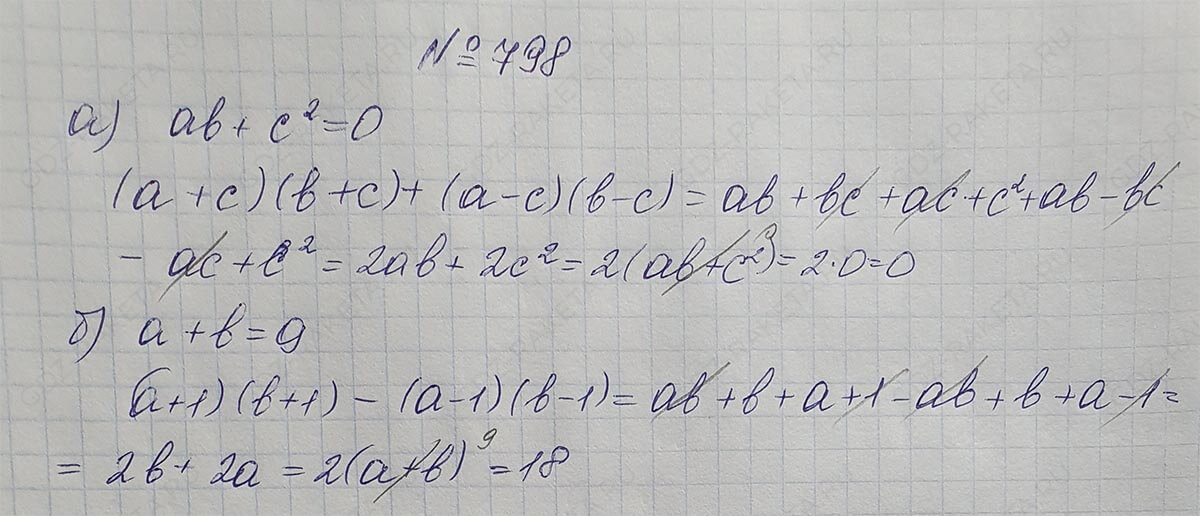 №798
а) ab + c² = 0
(a + c)(b + c) + (a - c)(b - c) = ab + bc + ac + c² + ab - bc
- ac + c² = 2ab + 2c² = 2(ab + c²)⁰ = 2·0 = 0
б) a + b = 9
(a+1)(b+1) - (a-1)(b-1) = ab + b + a + 1 - ab + b + a - 1 =
= 2b + 2a = 2(a+b)⁹ = 18